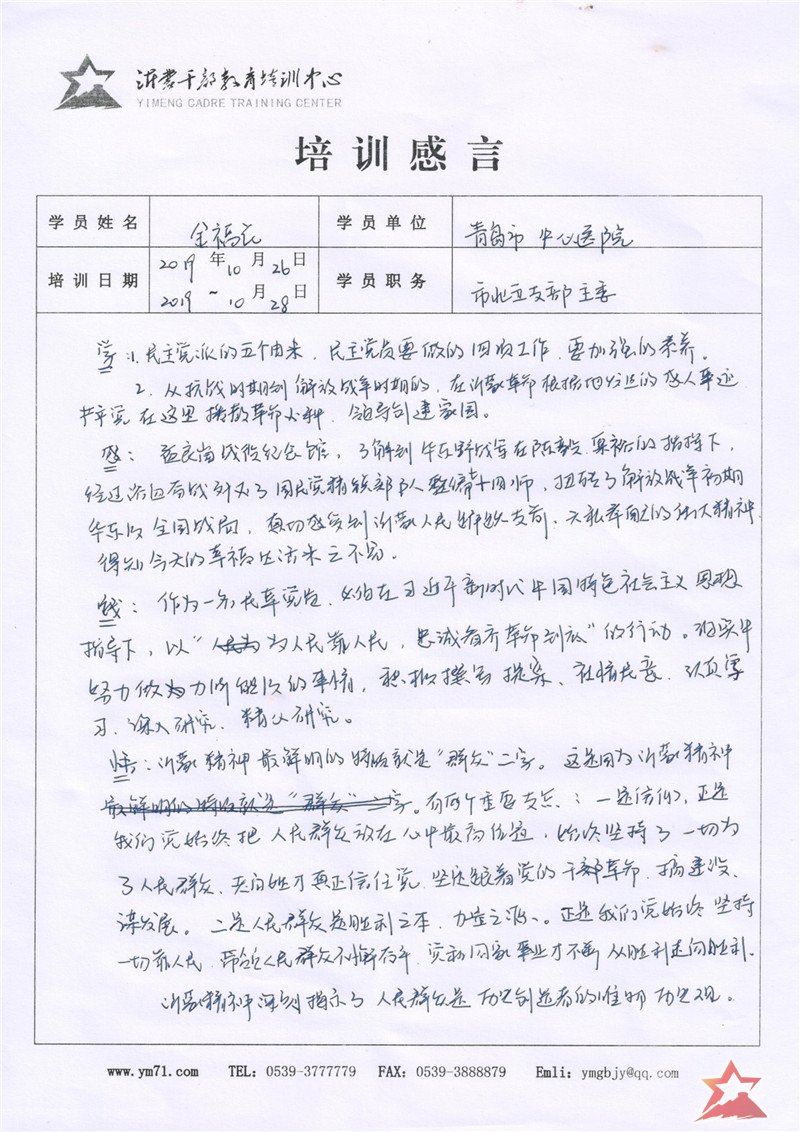 沂蒙干部教育培训中心
YIMENG CADRE TRAINING CENTER
培训感言
学员姓名 金福 学员单位 青岛市中心医院
培训日期 2019年10月26日 ~ 2019 10月28日 学员职务 市北五支部主委
学:1.民主党派的五个由来,民主党员要做的四项工作,要加强的素养。
2.从抗战时期到解放战争时期的,在沂蒙革命根据地发生的感人事迹
共产党在这里播撒革命火种,领导创建家园。
感:孟良崮战役纪念馆,了解到华东野战军在陈毅、粟裕的指挥下,
经过浴血奋战歼灭了国民党精锐部队整编七十四师,扭转了解放战争初期
华东及全国战局,真切感受到沂蒙人民踊跃支前、无私奉献的伟大精神,
得知今天的幸福生活来之不易。
践:作为一名民革党员,必须在习近平新时代中国特色社会主义思想
指导下,以“为人民靠人民,忠诚看齐革命到底”的行动。现实中
努力做力所能及的事情,积极撰写提案、社情民意,认真学
习、深入研究、精心研究。
悟:沂蒙精神最鲜明的特点就是“群众”二字。这是因为沂蒙精神
最鲜明的特点就是“群众”二字。有两个重要支点:一是信仰,正是
我们党始终把人民群众放在心中最高位置,始终坚持了一切为
了人民群众,老百姓才真正信任党,坚定跟着党的干部革命、搞建设、
谋发展。二是人民群众是胜利之本,力量之源。正是我们党始终坚持
一切靠人民,带领人民群众不懈奋斗,党和国家事业才不断从胜利走向胜利。
沂蒙精神深刻揭示了人民群众是历史创造者的唯物历史观。
www.ym71.com TEL:0539-3777779 FAX:0539-3888879 Emli:ymgbjy@qq.com